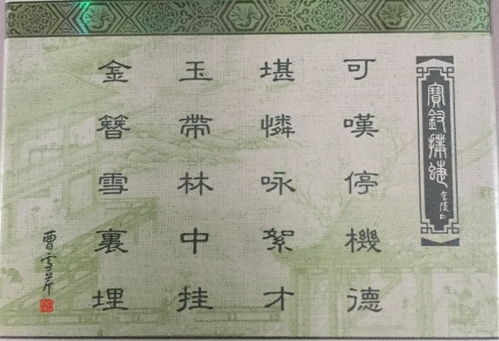 寶釵撲蝶
可嘆停機德
堪憐咏絮才
玉帶林中挂
金簪雪裏埋
曹雪芹